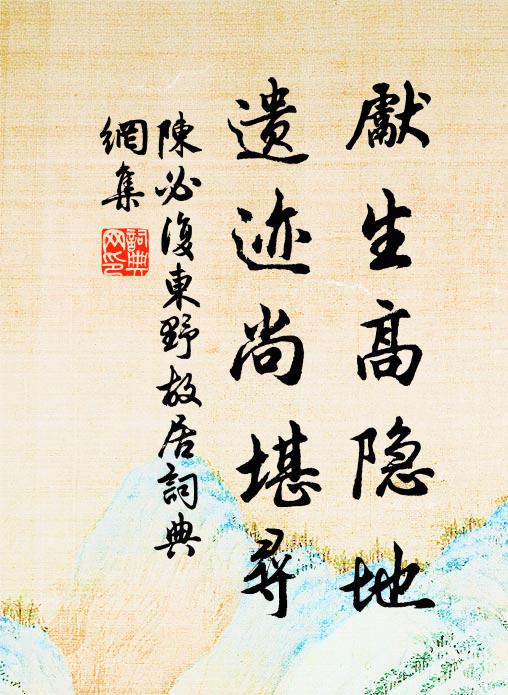 獻生高隐地
遗迹尚堪尋
陳必復東野故居詞典
網集
詞典
网印